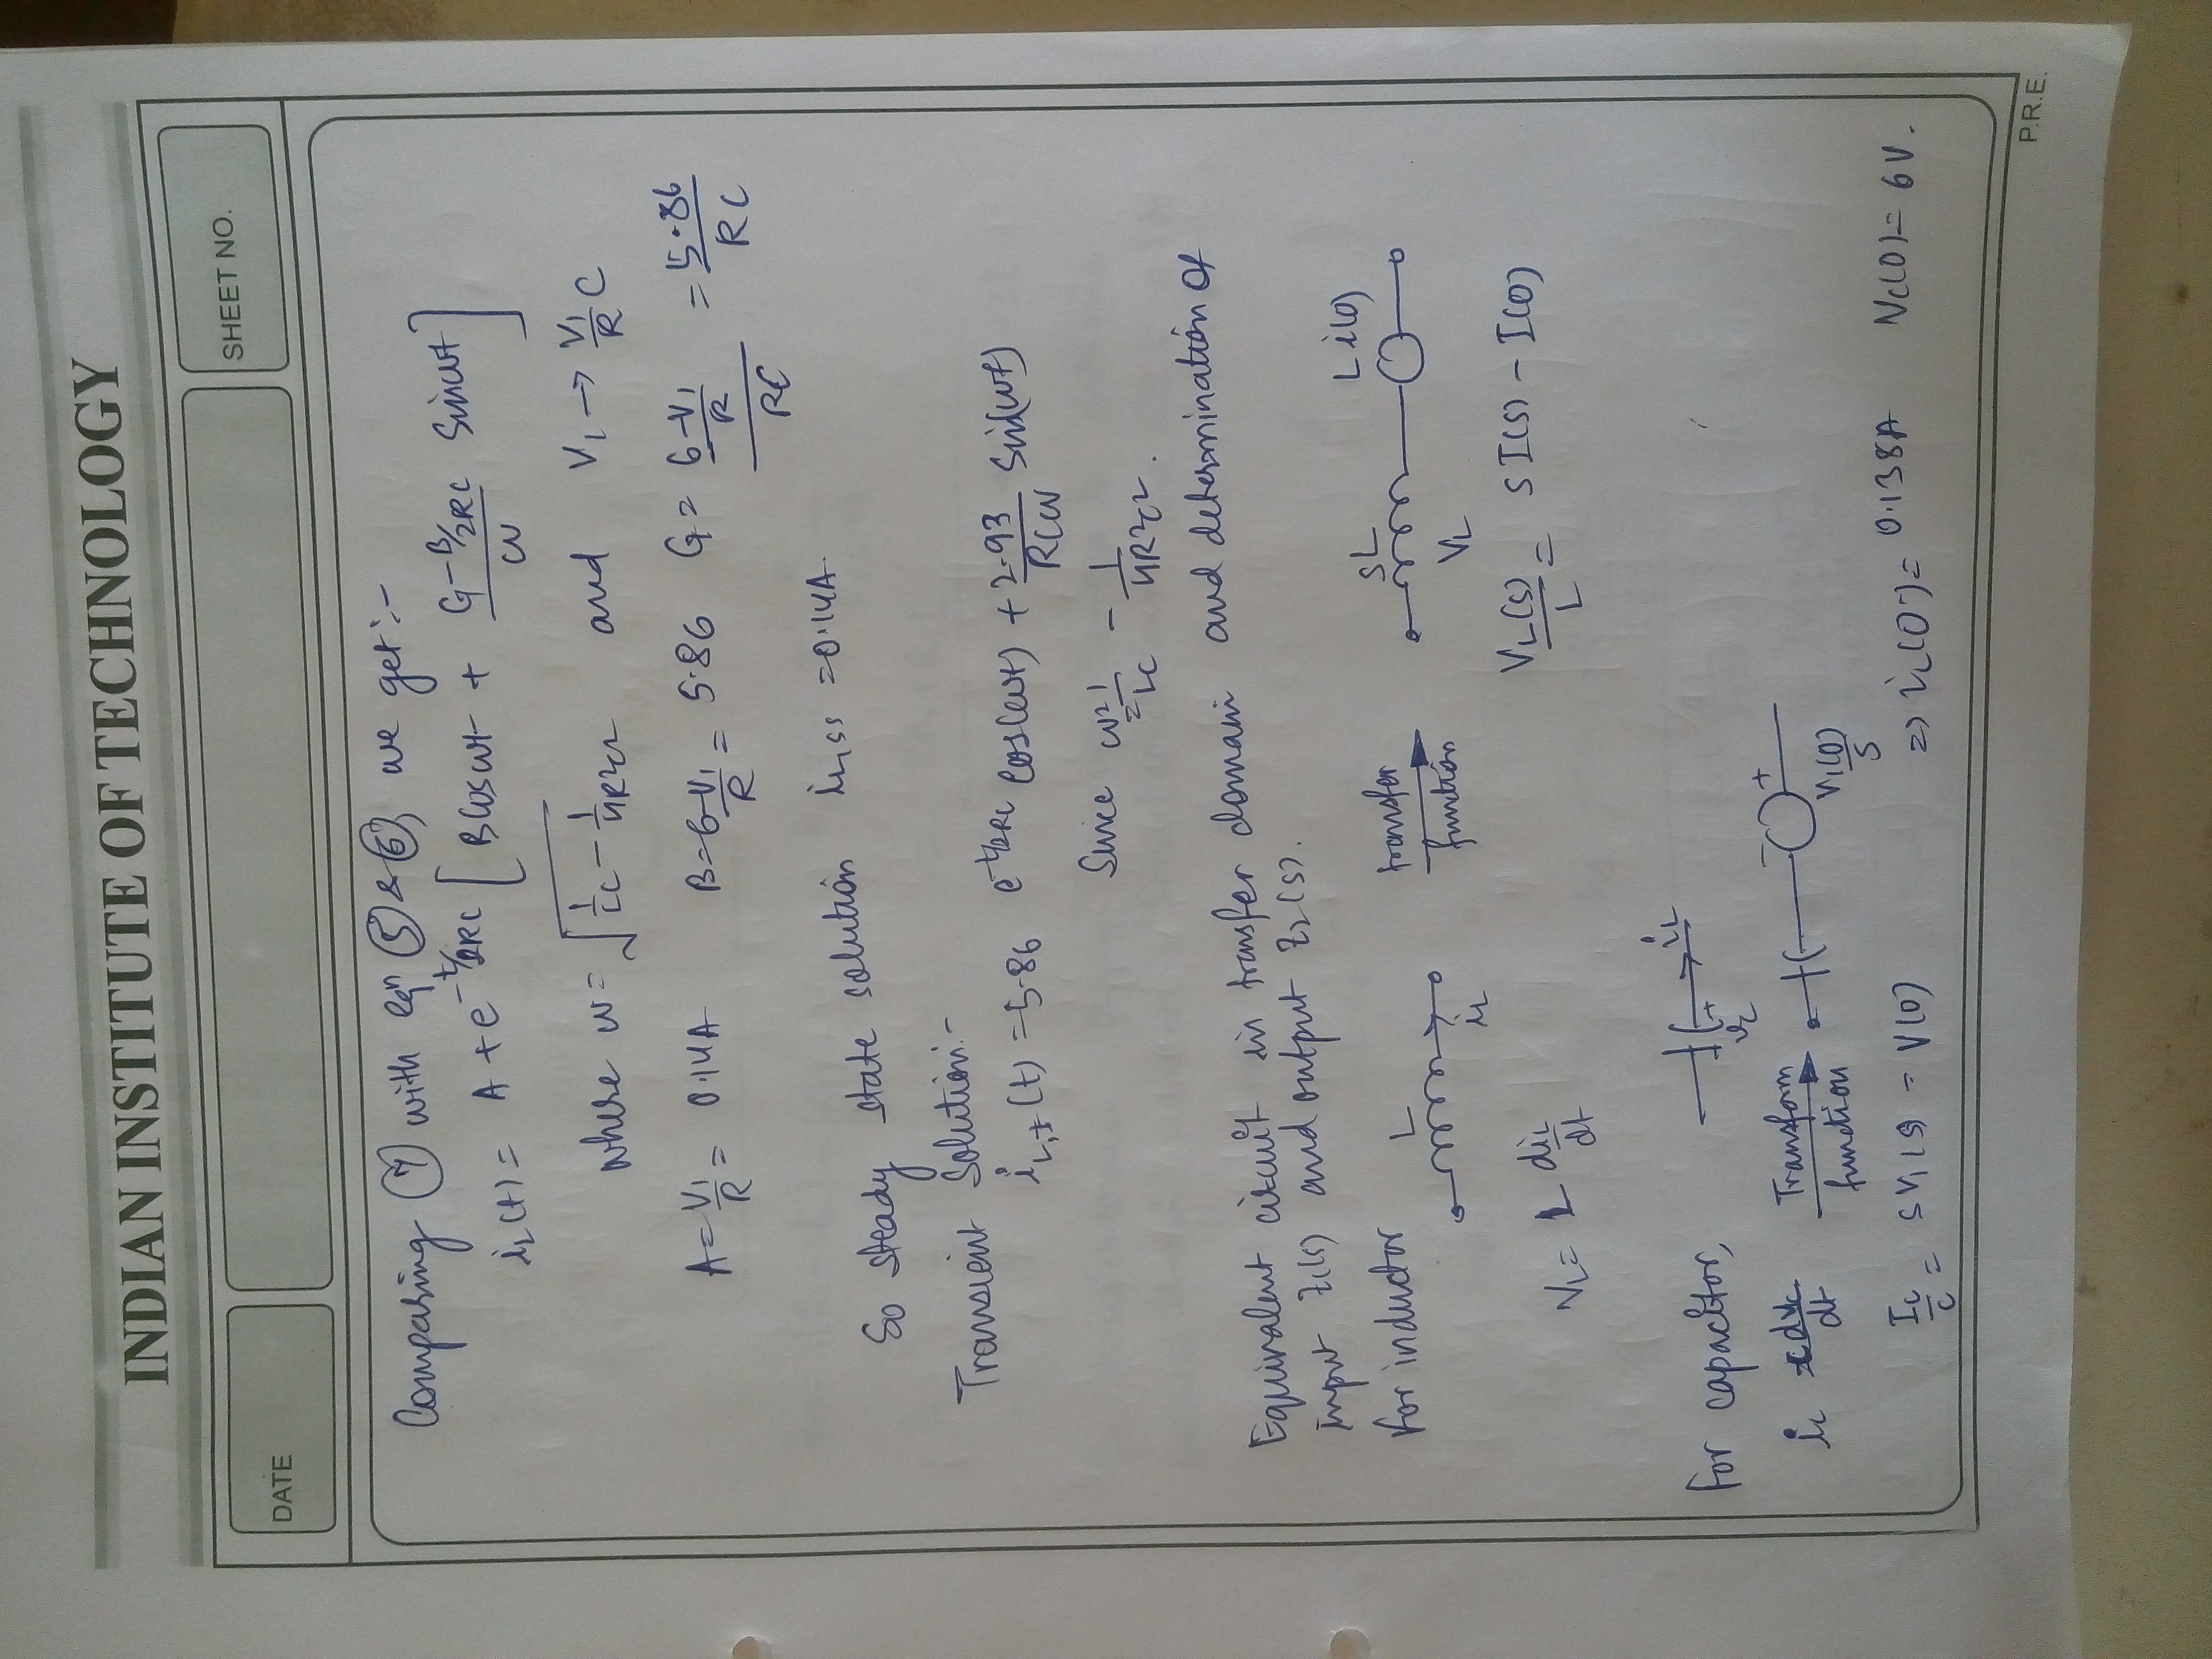 INDIAN INSTITUTE OF TECHNOLOGY
DATE
SHEET NO.
Comparing (7) with eqn (5) & (6), we get :-
i_L(t) = A + e^(-t/2RC) [ B cos wt + (G - B/2RC)/w Sin wt ]
where w = √(1/LC - 1/4R²C²) and V₁ → V₁/R C
A = V₁/R = 0.14A B = 6-V₁/R = 5.86 G = (6-V₁/R)/RC = 5.86/RC
So steady state solution i_L,ss = 0.14A.
Transient Solution :-
i_L,t(t) = 5.86 e^(-t/2RC) cos(wt) + 2.93/RCW Sin(wt)
Since w² = 1/LC - 1/4R²C².
Equivalent circuit in transfer domain and determination of
input Z₁(s) and output Z₂(s).
For inductor
L
i_L
transfer
function
SL
L i(0)
V_L
V_L = L di_L/dt
V_L(s)/L = S I(s) - I(0)
For capacitor,
i_L
+
v_c
i_c = c dv_c/dt
Transform
function
- +
V₁(0)/S
I_c/c = S V₁(s) - V(0)
=> i_L(0⁻) = 0.138A V_c(0) = 6V.
P.R.E.